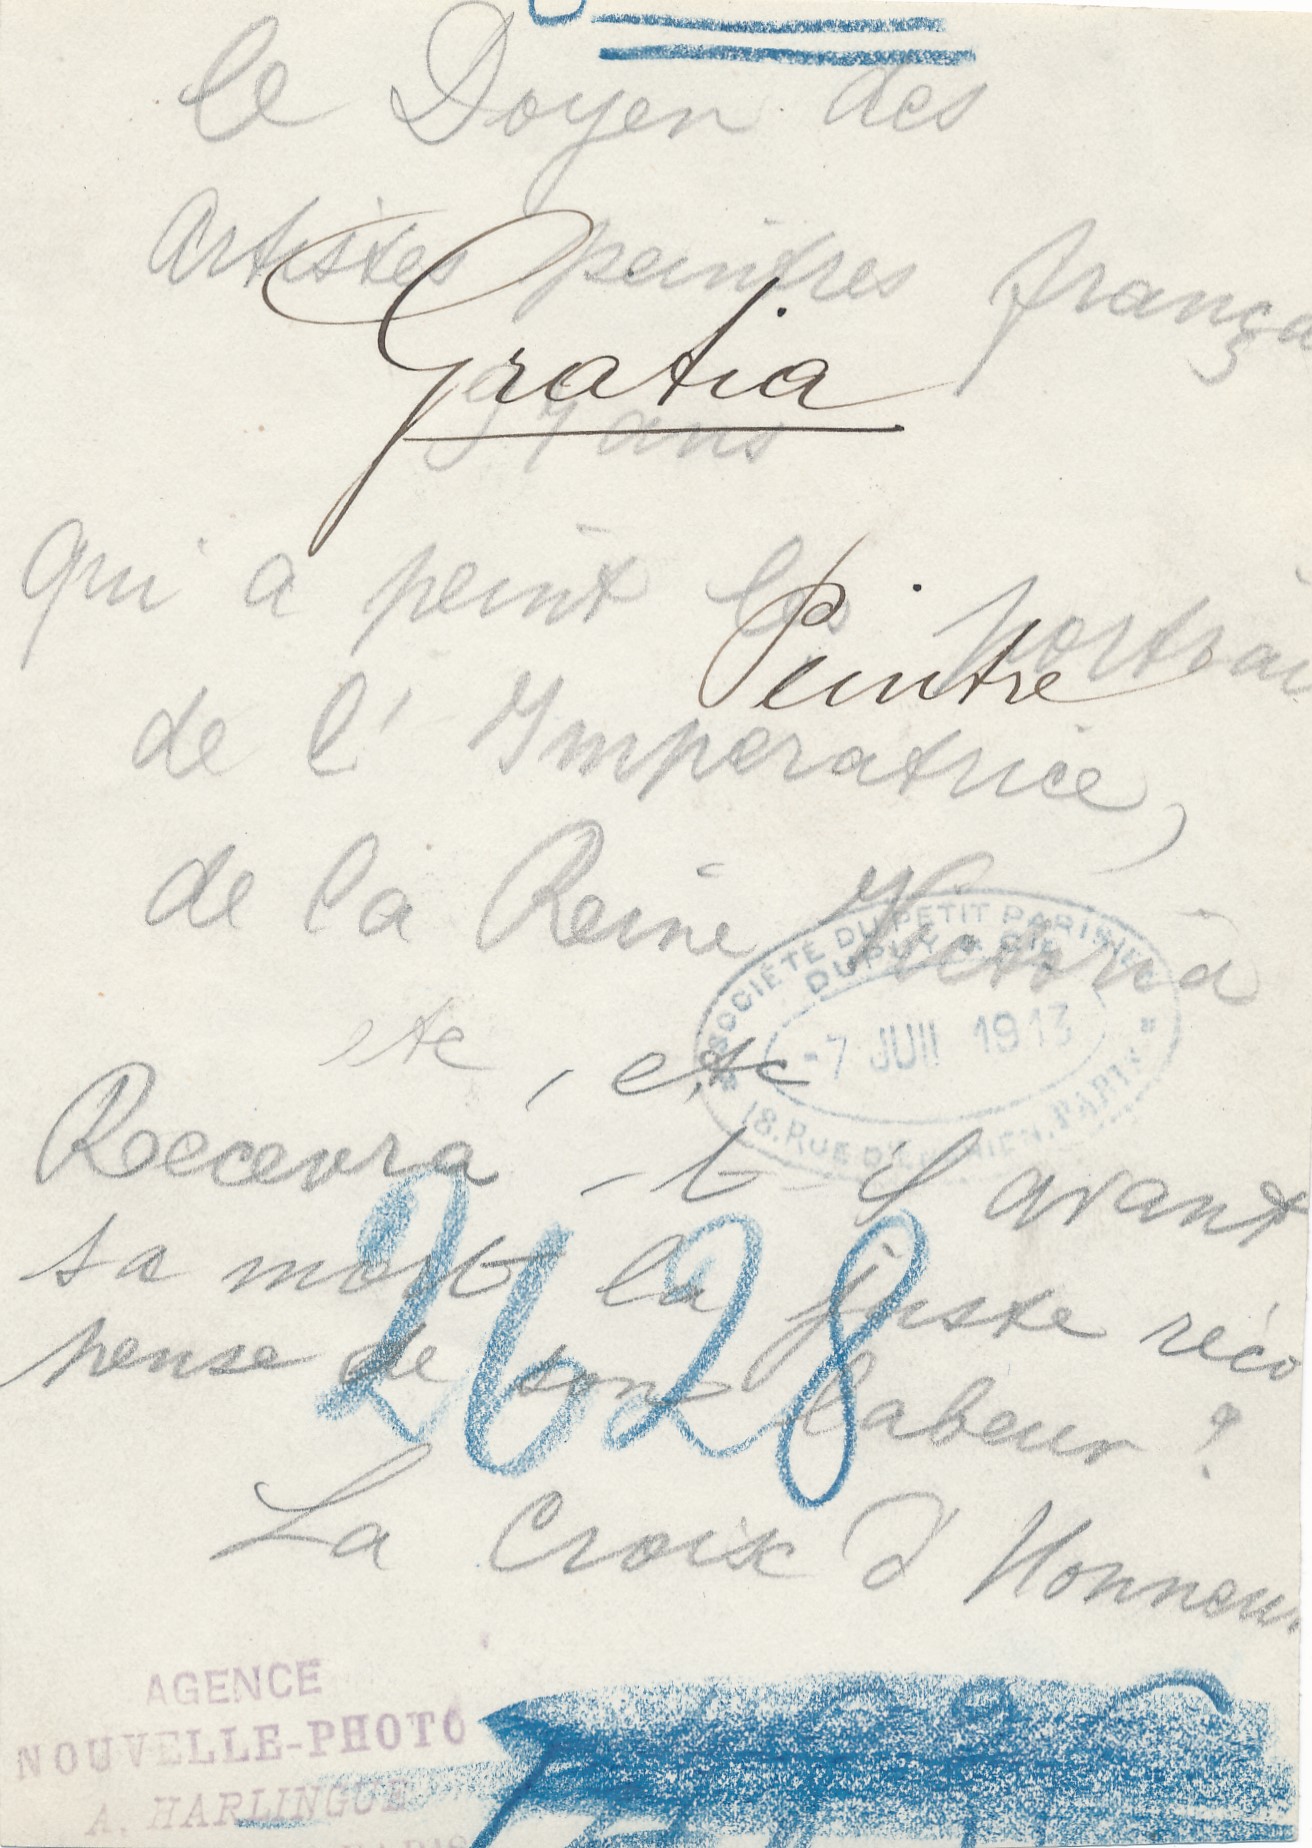 le Doyen des
Artistes peintres frança
Gratia
97 ans
qui a peint les portrai
Peintre
de l'Imperatrice,
de la Reine Victoria
etc, etc
SOCIÉTÉ DU PETIT PARISIEN
DUPUY & CIE
-7 JUIL 1913
18. RUE D'ENGHIEN. PARIS
Recevra-t-il avant
sa mort la juste réco
pense de son labeur ?
2628
La Croix d'Honneur
AGENCE
NOUVELLE-PHOTO
A. HARLINGUE
PARIS